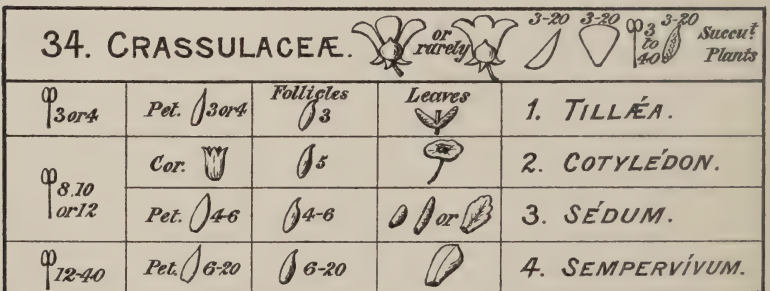 34. CRASSULACEÆ. or rarely 3-20 3-20 3 to 40 3-20 Succut. Plants
3 or 4 Pet. 3 or 4 Follicles 3 Leaves 1. TILLǼA.
8.10 or 12 Cor. 5 2. COTYLÉDON.
Pet. 4-6 4-6 or 3. SÉDUM.
12-40 Pet. 6-20 6-20 4. SEMPERVÍVUM.